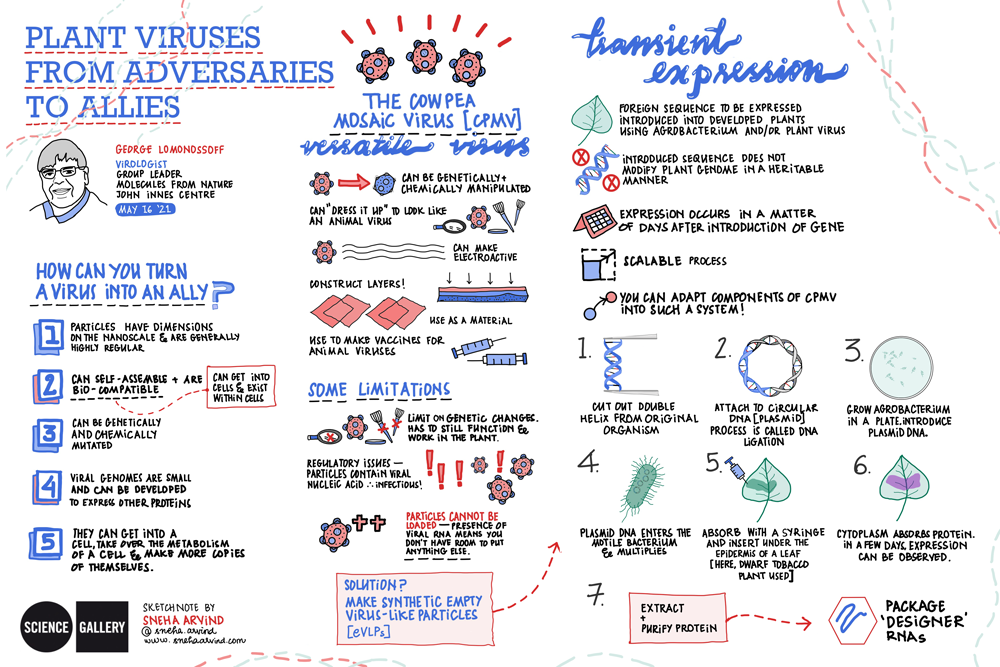 PLANT VIRUSES
FROM ADVERSARIES
TO ALLIES
GEORGE LOMONOSSOFF
VIROLOGIST
GROUP LEADER
MOLECULES FROM NATURE
JOHN INNES CENTRE
MAY 16 '21
HOW CAN YOU TURN
A VIRUS INTO AN ALLY?
1 PARTICLES HAVE DIMENSIONS
ON THE NANOSCALE & ARE GENERALLY
HIGHLY REGULAR
2 CAN SELF-ASSEMBLE + ARE
BIO-COMPATIBLE
CAN GET INTO
CELLS & EXIST
WITHIN CELLS
3 CAN BE GENETICALLY
AND CHEMICALLY
MUTATED
4 VIRAL GENOMES ARE SMALL
AND CAN BE DEVELOPED
TO EXPRESS OTHER PROTEINS
5 THEY CAN GET INTO A
CELL, TAKE OVER THE METABOLISM
OF A CELL & MAKE MORE COPIES
OF THEMSELVES.
SCIENCE GALLERY
SKETCHNOTE BY
SNEHA ARVIND
@sneha.arvind
www.snehaarvind.com
THE COWPEA
MOSAIC VIRUS [CPMV]
versatile virus
CAN BE GENETICALLY +
CHEMICALLY MANIPULATED
CAN "DRESS IT UP" TO LOOK LIKE
AN ANIMAL VIRUS
CAN MAKE
ELECTROACTIVE
CONSTRUCT LAYERS!
USE AS A MATERIAL
USE TO MAKE VACCINES FOR
ANIMAL VIRUSES
SOME LIMITATIONS
LIMIT ON GENETIC CHANGES.
HAS TO STILL FUNCTION &
WORK IN THE PLANT.
REGULATORY ISSUES —
PARTICLES CONTAIN VIRAL
NUCLEIC ACID ∴ INFECTIOUS!
!!!!
++
PARTICLES CANNOT BE
LOADED — PRESENCE OF
VIRAL RNA MEANS YOU
DON'T HAVE ROOM TO PUT
ANYTHING ELSE.
SOLUTION?
MAKE SYNTHETIC EMPTY
VIRUS-LIKE PARTICLES
[eVLPs]
transient
expression
FOREIGN SEQUENCE TO BE EXPRESSED
INTRODUCED INTO DEVELOPED PLANTS
USING AGROBACTERIUM AND/OR PLANT VIRUS
INTRODUCED SEQUENCE DOES NOT
MODIFY PLANT GENOME IN A HERITABLE
MANNER
EXPRESSION OCCURS IN A MATTER
OF DAYS AFTER INTRODUCTION OF GENE
SCALABLE PROCESS
YOU CAN ADAPT COMPONENTS OF CPMV
INTO SUCH A SYSTEM!
1.
CUT OUT DOUBLE
HELIX FROM ORIGINAL
ORGANISM
2.
ATTACH TO CIRCULAR
DNA [PLASMID]
PROCESS IS CALLED DNA
LIGATION
3.
GROW AGROBACTERIUM
IN A PLATE. INTRODUCE
PLASMID DNA.
4.
PLASMID DNA ENTERS THE
MOTILE BACTERIUM
& MULTIPLIES
5.
ABSORB WITH A SYRINGE
AND INSERT UNDER THE
EPIDERMIS OF A LEAF
[HERE, DWARF TOBACCO
PLANT USED]
6.
CYTOPLASM ABSORBS PROTEIN.
IN A FEW DAYS, EXPRESSION
CAN BE OBSERVED.
7.
EXTRACT
+
PURIFY PROTEIN
PACKAGE
'DESIGNER'
RNAs